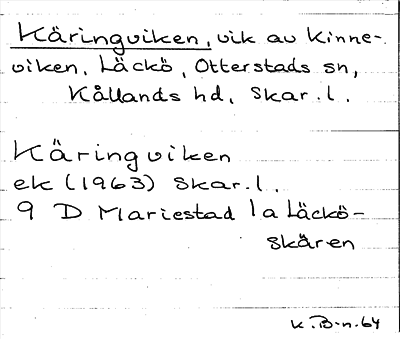 Käringviken, vik av Kinne-
viken, Läckö, Otterstads sn,
Kållands hd, Skar. l.
Käringviken
ek (1963) Skar. l.
9 D Mariestad 1a Läckö-
skären
K. B-n. 64